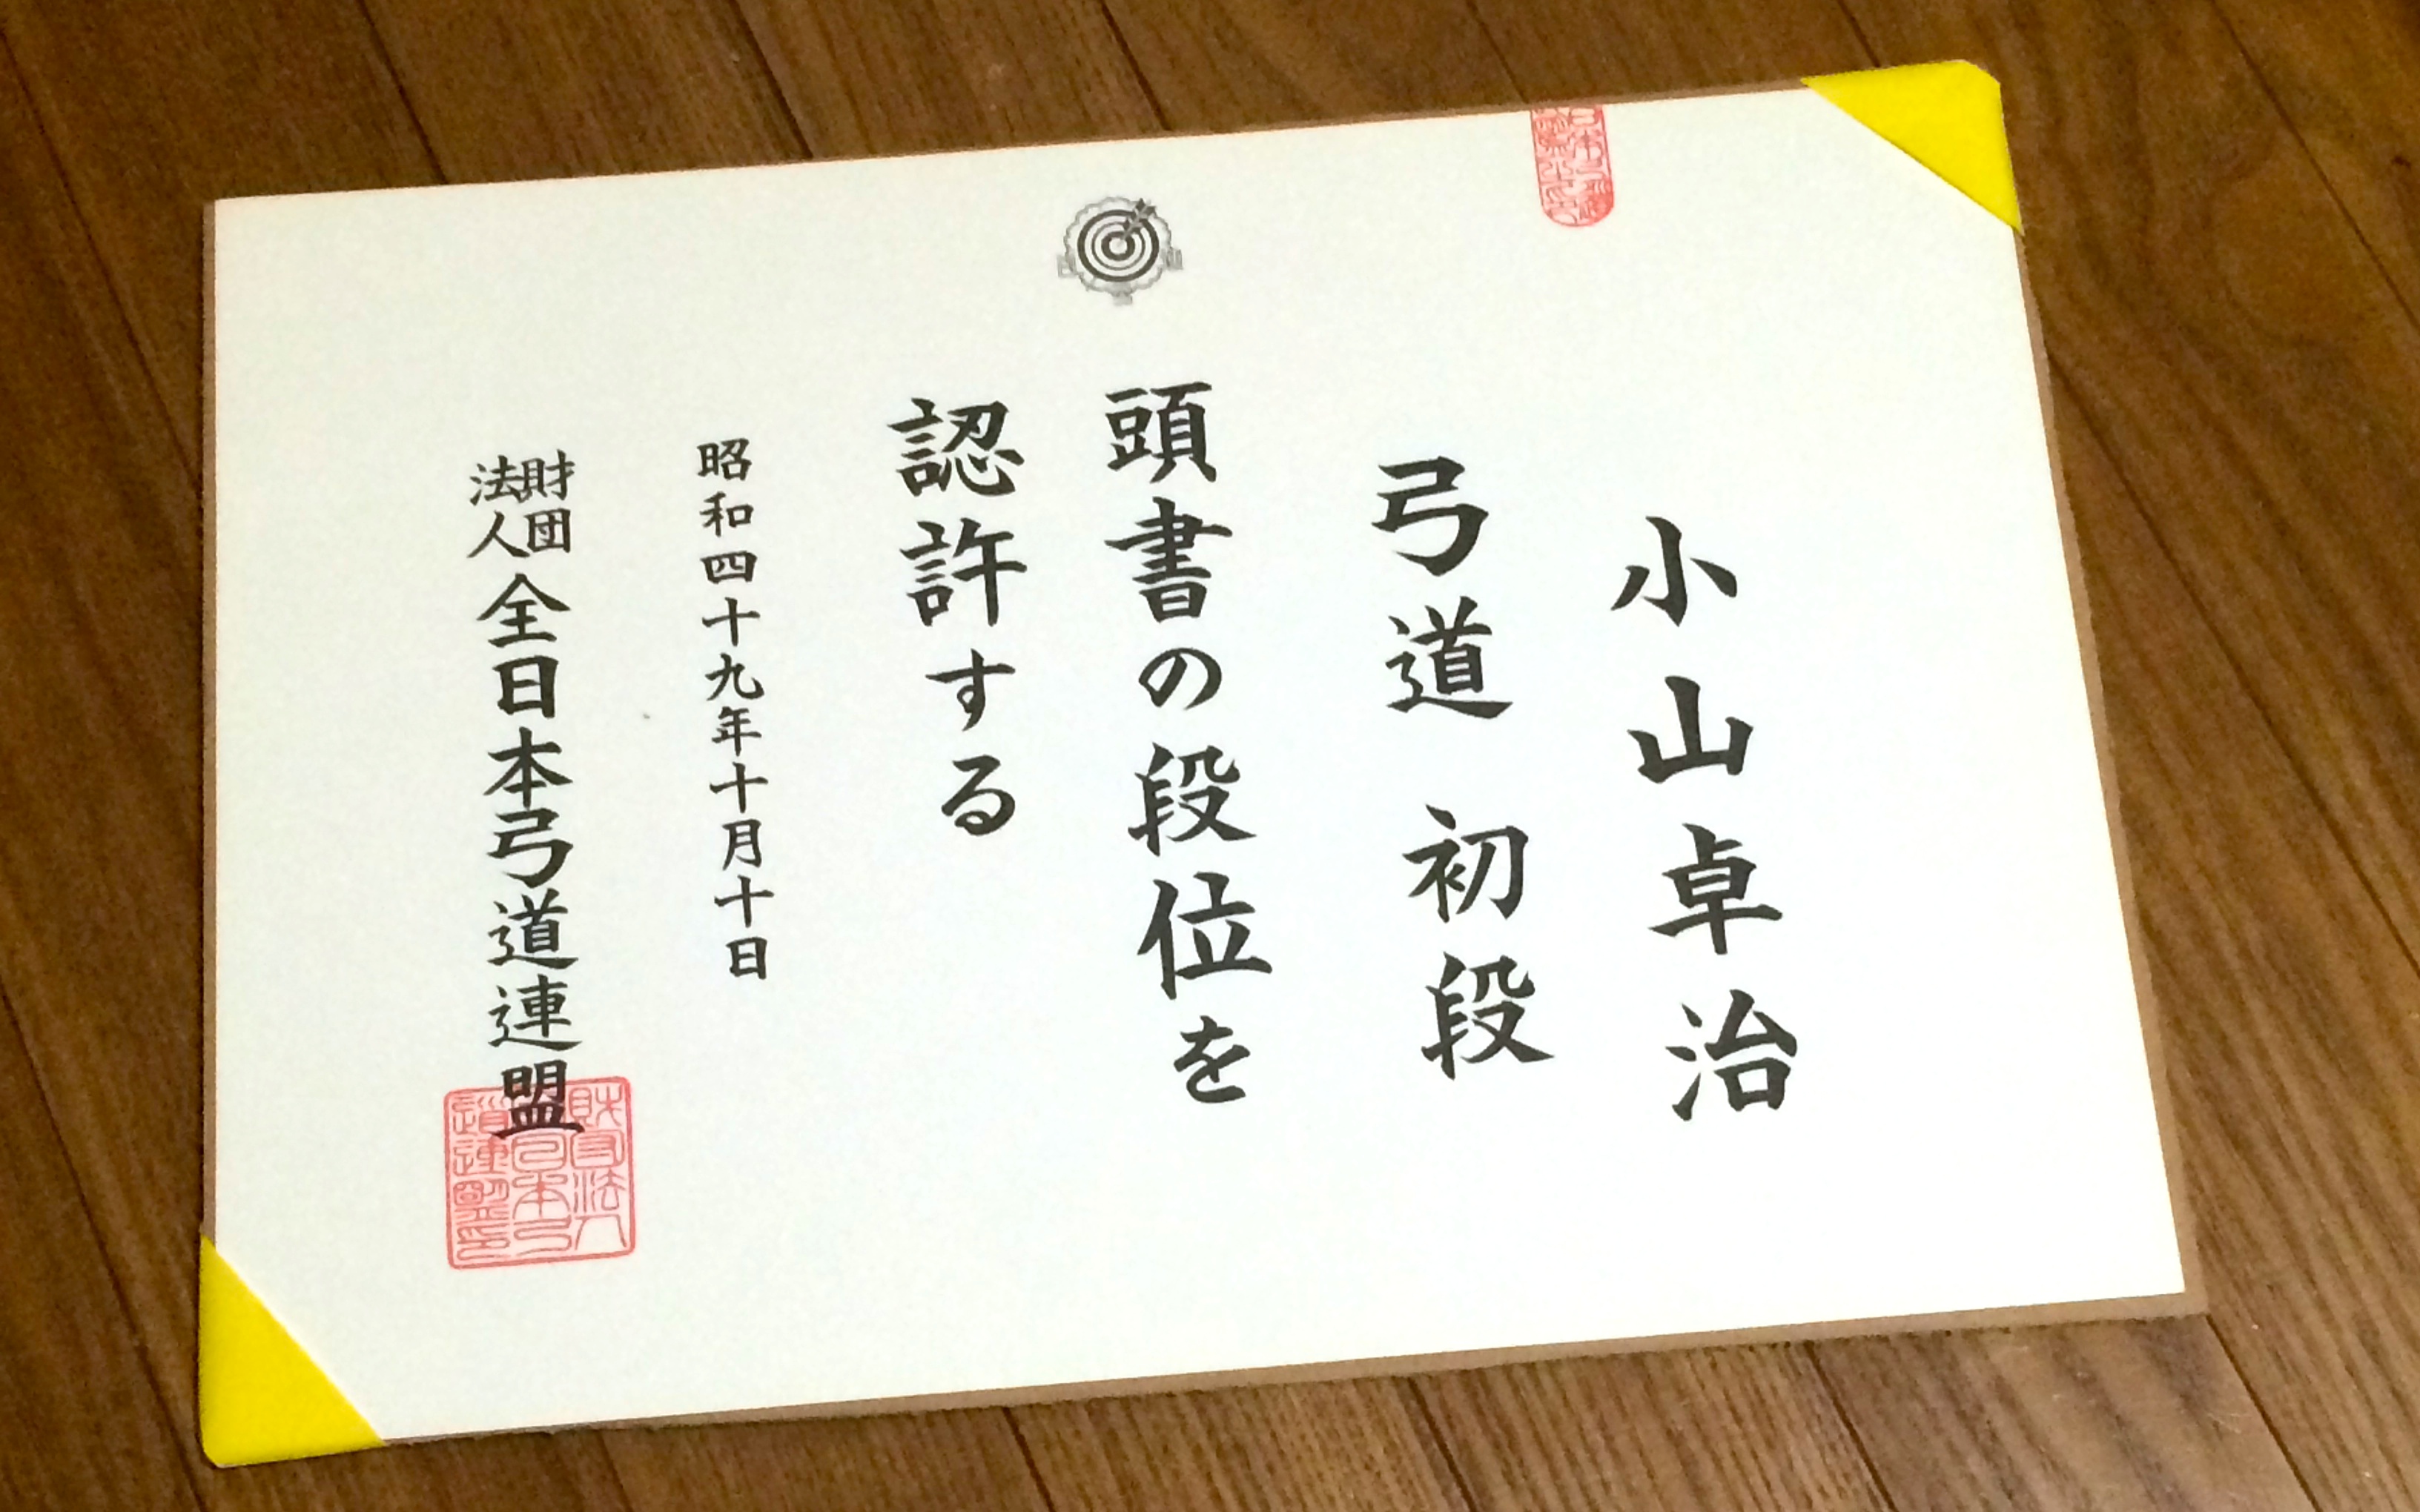 小山卓治
弓道 初段
頭書の段位を
認許する
昭和四十九年十月十日
財団法人 全日本弓道連盟
財団法人
全日本弓
道連盟印